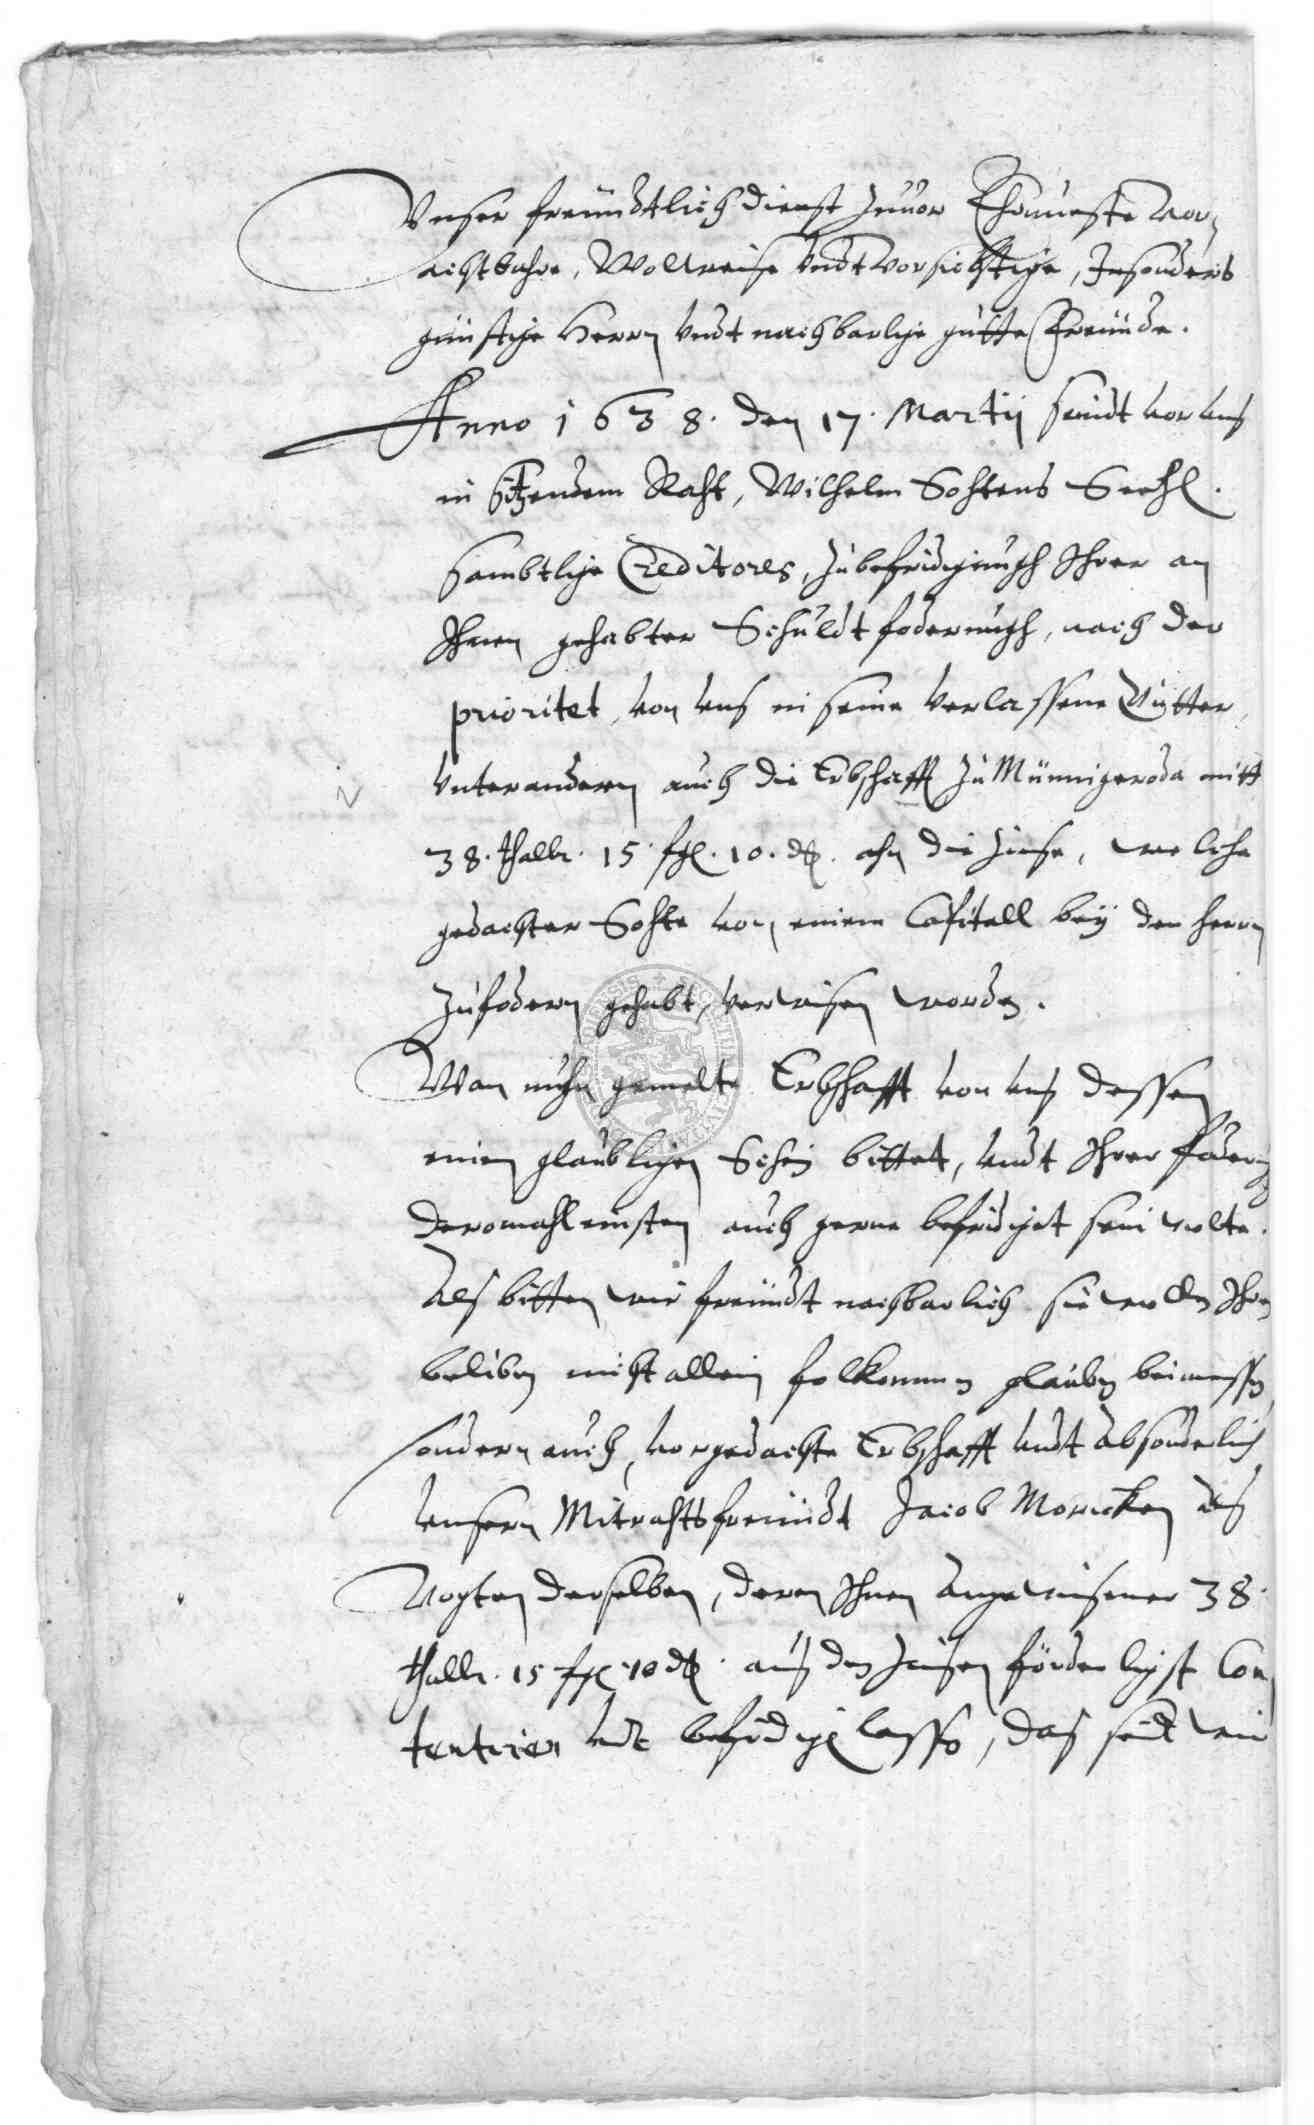 Vnser freündtlich dienst zuuor Ehrnueste vor
achtbahre, Wollweise vndt vorsichtige, Insonders
günstige Herrn vndt nachbarlige gutte Freünde.
Anno 1638. den 17. Martij seindt vor vns
in sitzendem Raht, Wilhelm Sohtens Seehl.
sambtlige Creditores, zu befridigungh Ihrer an
Ihnen gehabter Schuldtfoderungh, nach der
prioritet, von vns in seine verlassene Gütter,
vnter anderen auch die Erbschafft zu Münnigeroda mitt
38. thallr. 15. ßgl. 10. d. ahn die zinse, welche
gedachter Sohte von einem Capitall beÿ den herrn
zufodern gehabt, verwisen worden.
Wan nuhn gemelte Erbschafft von vns dessen
einen glaubligen Schein bittet, vndt Ihrer foderung
deromahleinsten auch gerne befridiget sein wolte.
Als bitten wir freündt nachbarlich sie wollen Ihrem
beliben nicht allein folkommen glauben beimessen
sondern auch, vorgedachte Erbschafft vndt absonderlich
vnsern Mitrahtsfreündt Jacob Moricken als
Vogten derselben, deren Ihnen angewisener 38.
thallr. 15 ßgl. 10 d. aus den zinsen förderligst Con
tentiren vndt befridigen lassen, das seindt wir